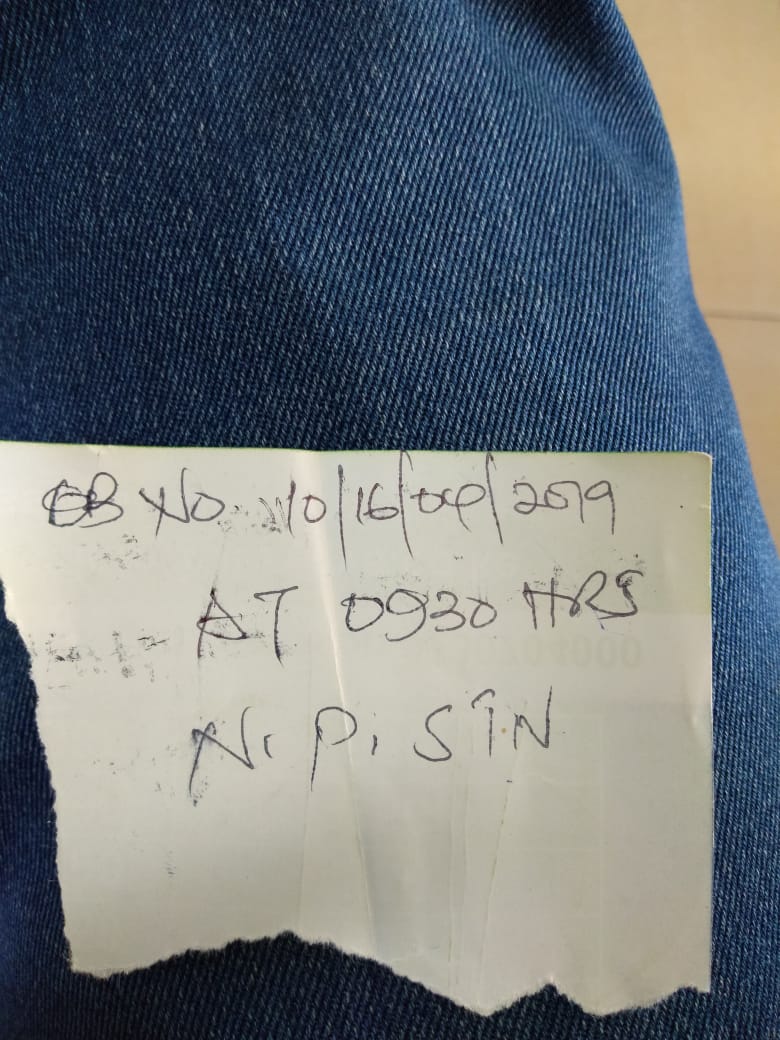 OB NO. 10/16/04/2019
AT 0930 HRS
N. P. STN